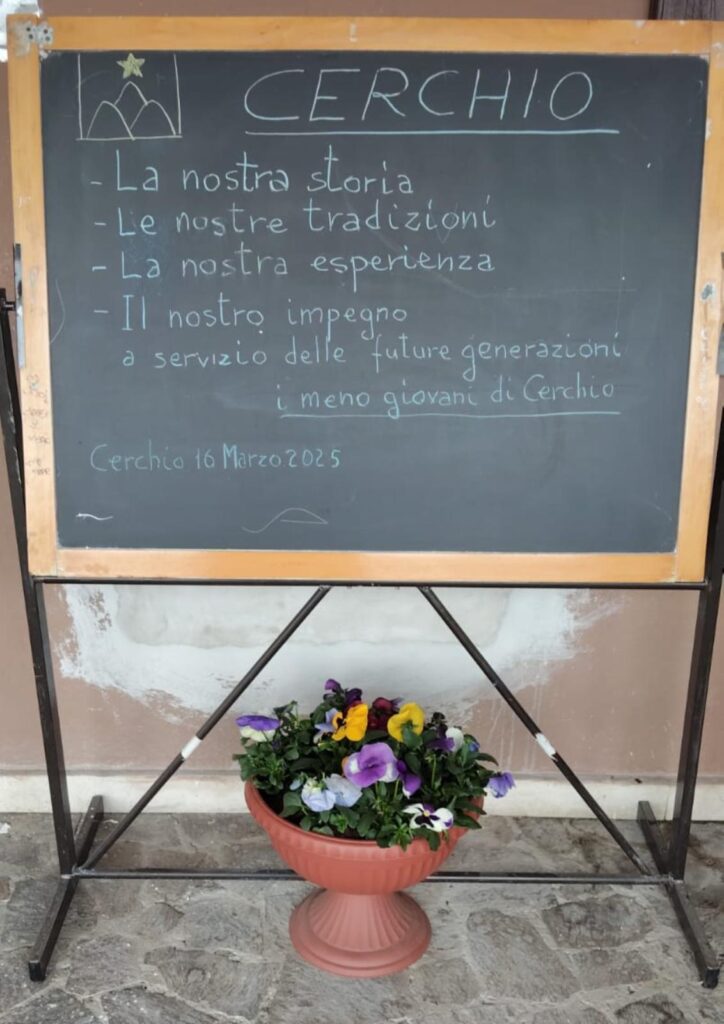 CERCHIO
- La nostra storia
- Le nostre tradizioni
- La nostra esperienza
- Il nostro impegno
a servizio delle future generazioni
i meno giovani di Cerchio
Cerchio 16 Marzo 2025